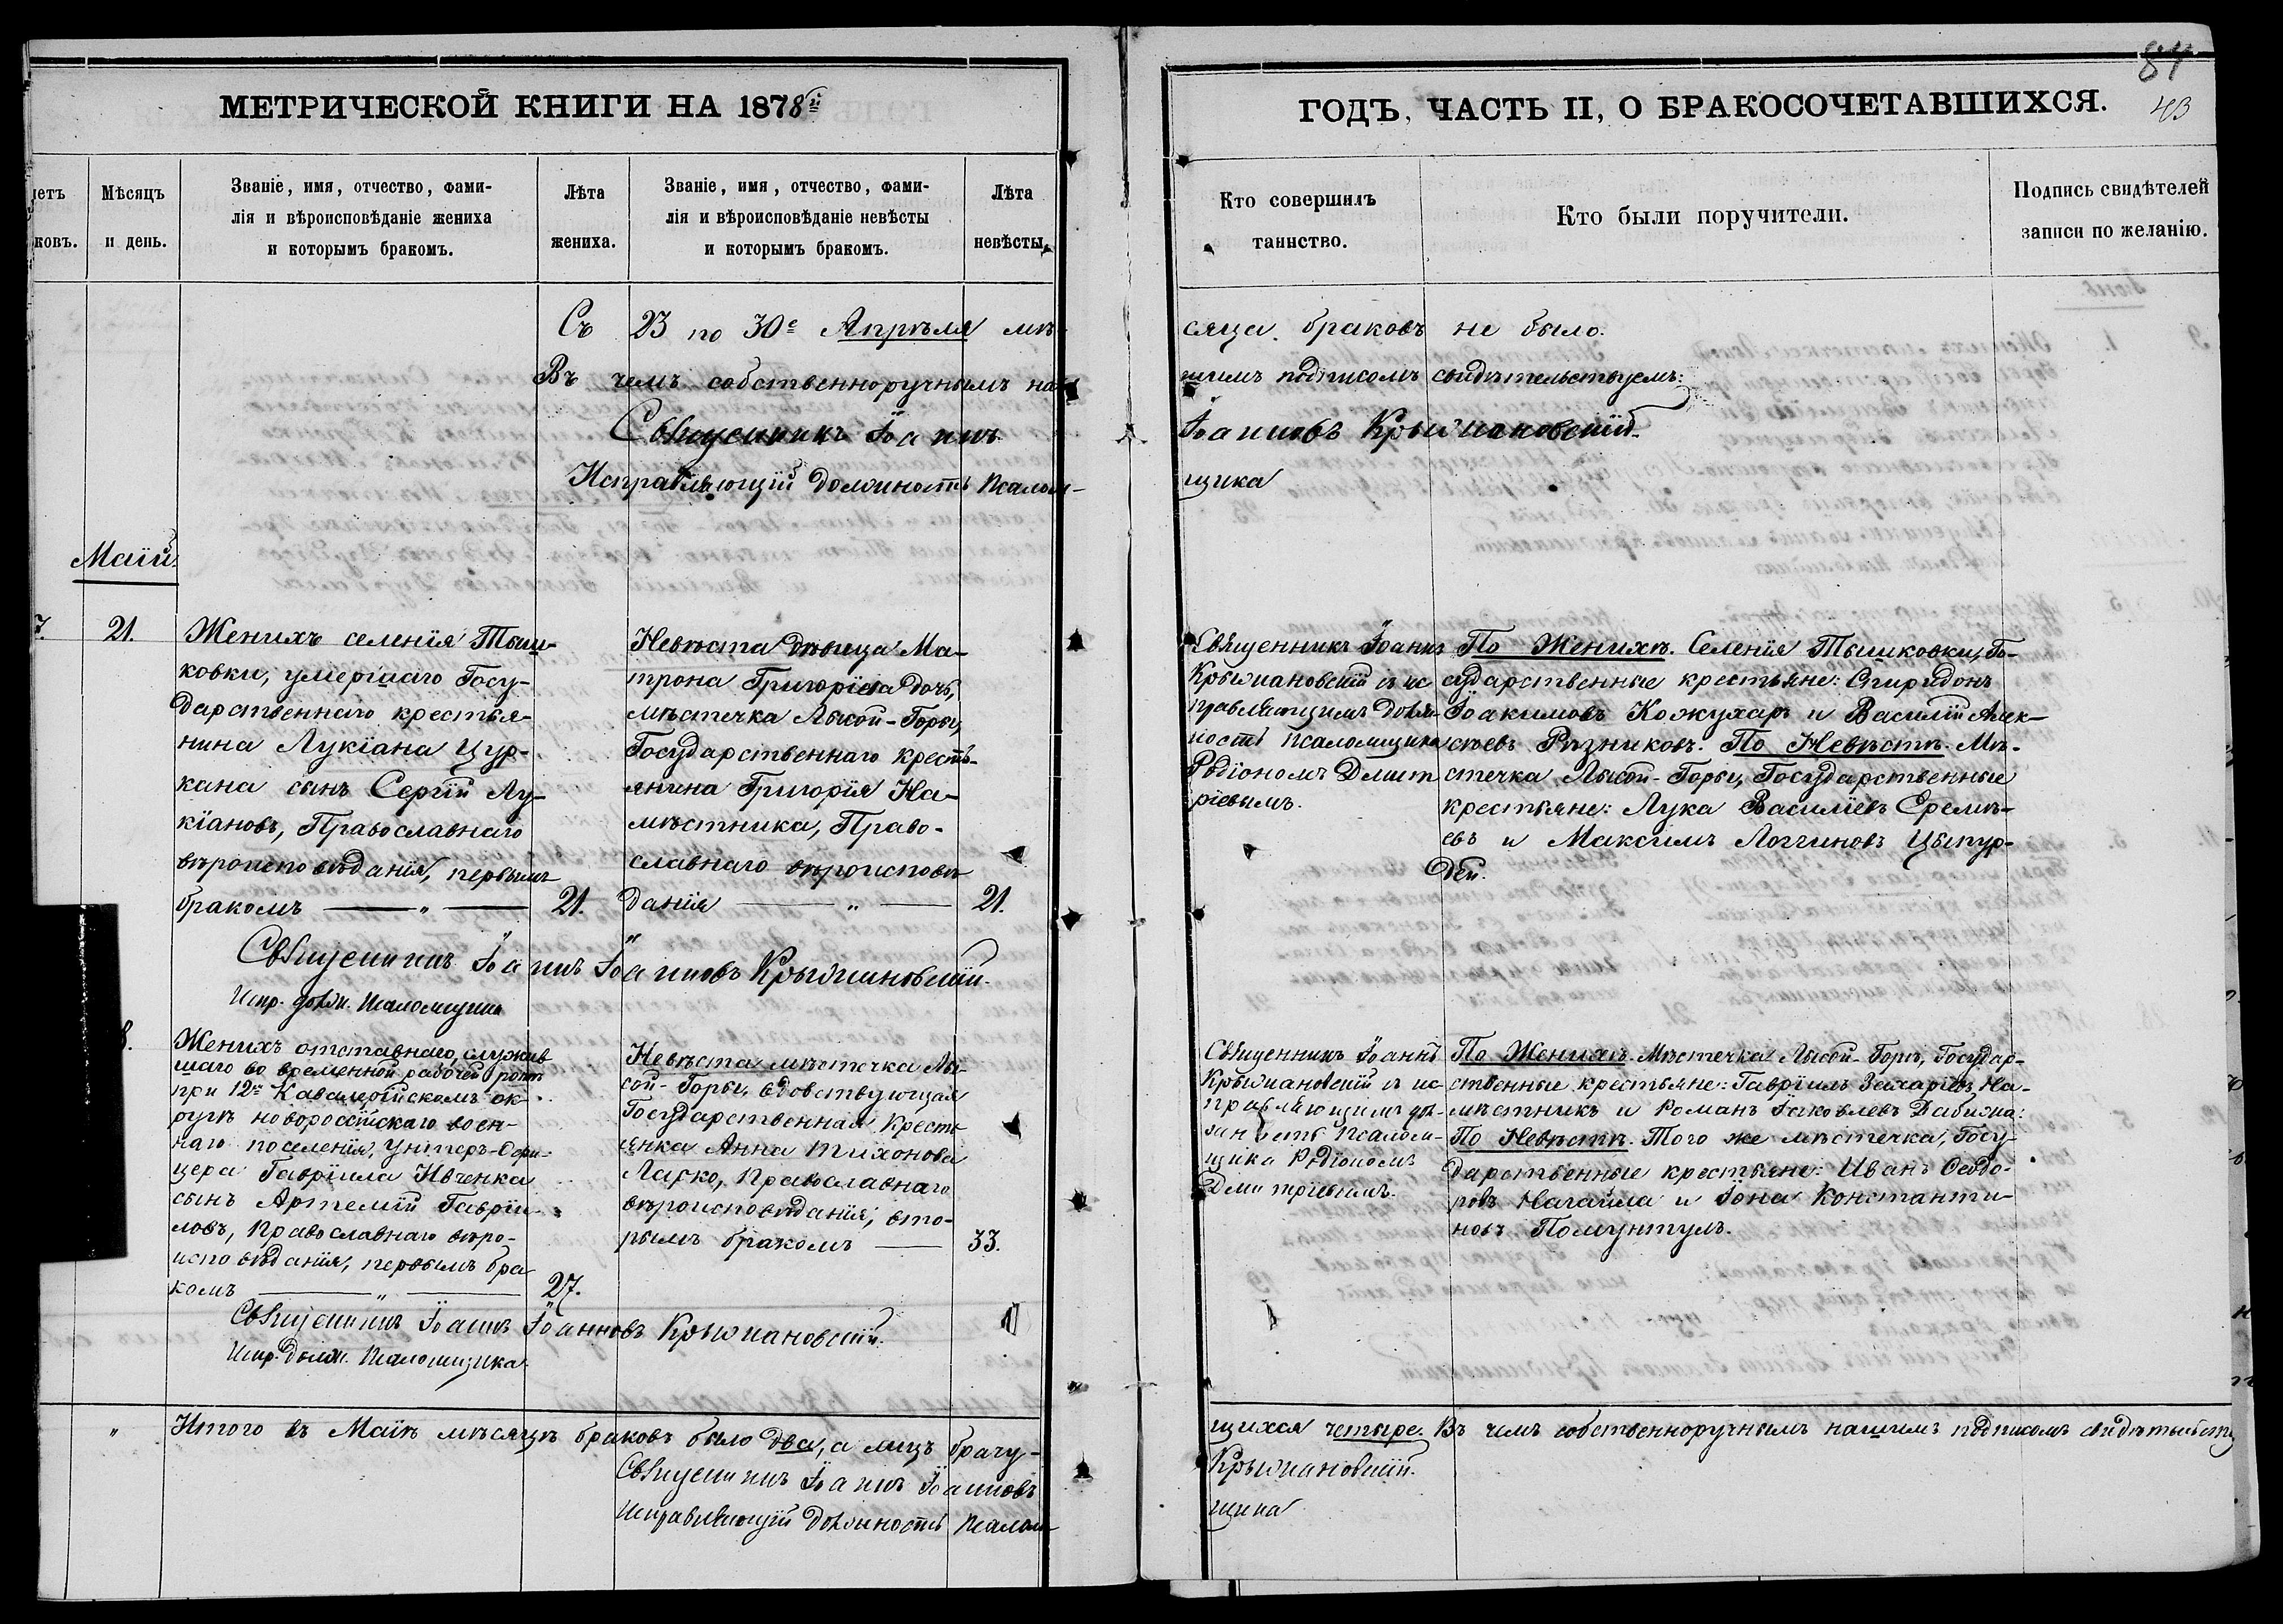 84
43
МЕТРИЧЕСКОЙ КНИГИ НА 1878й
ГОДЪ, ЧАСТЬ II, О БРАКОСОЧЕТАВШИХСЯ.
Мѣсяцъ
и день.
Званіе, имя, отчество, фами-
лія и вѣроисповѣданіе жениха
и которымъ бракомъ.
Лѣта
жениха.
Званіе, имя, отчество, фами-
лія и вѣроисповѣданіе невѣсты
и которымъ бракомъ.
Лѣта
невѣсты.
Кто совершилъ
таинство.
Кто были поручители.
Подпись свидѣтелей
записи по желанію.
Съ 23 по 30е Апрѣля мѣ-
сяца браковъ не было.
Въ чемъ собственноручнымъ на-
шимъ подписомъ свидѣтельствуемъ:
Священникъ Іоаннъ
Іоанновъ Крыжановскій.
Исправляющій должность Псалом-
щика
Маій.
7. 21.
Женихъ селенія Тыш-
ковки, умершаго Госу-
дарственнаго крестья-
нина Лукіана Цур-
кана сынъ Сергій Лу-
кіановъ, Православнаго
вѣроисповѣданія, первымъ
бракомъ — „ — 21.
Невѣста дѣвица Ма-
трона Григоріева дочь,
мѣстечка Лысой-Горы,
Государственнаго кресть-
янина Григорія На-
мѣстника, Право-
славнаго вѣроисповѣ-
данія — „ — 21.
Священникъ Іоаннъ
Крыжановскій съ ис
правляющимъ долж-
ность Псаломщика
Родіономъ Димит
ріевымъ.
По Женихѣ. Селенія Тышковки, Го-
сударственные крестьяне: Спиридонъ
Іоакимовъ Кожухарь и Василій Алек-
сѣевъ Рѣзниковъ. По Невѣстѣ. Мѣ-
стечка Лысой-Горы, Государственные
крестьяне: Лука Василіевъ Еремѣ-
евъ и Максимъ Логгиновъ Цыпур-
дѣй.
Священникъ Іоаннъ Іоанновъ Крыжановскій.
Испр. долж. Псаломщика
8.
Женихъ отставнаго, служив
шаго во временной рабочей ротѣ
при 12м Кавалерійскомъ ок-
ругѣ новороссійскаго воен-
наго поселенія, Унтеръ-Офи-
цера Гавріила Ивченка
сынъ Артемій Гавріи-
ловъ, Православнаго вѣро-
исповѣданія, первымъ бра
комъ — „ — 27.
Невѣста мѣстечка Лы-
сой-Горы, вдовствующая
Государственная Кресть
янка Анна Тихонова
Ларко, Православнаго
вѣроисповѣданія, вто-
рымъ бракомъ — 33.
Священникъ Іоаннъ
Крыжановскій съ ис-
правляющимъ дол-
жность Псалом-
щика Родіономъ
Димитріевымъ.
По Женихѣ. Мѣстечка Лысой-Горы, Государ-
ственные крестьяне: Гавріилъ Захаріевъ На-
мѣстникъ и Романъ Іаковлевъ Дабижа:
По Невѣстѣ. Того же мѣстечка, Госу-
дарственные крестьяне: Иванъ Ѳеодо-
ровъ Нагайла и Іона Константи-
новъ Помунтулъ.
Священникъ Іоаннъ Іоанновъ Крыжановскій.
Испр. долж. Псаломщика.
„ Итого въ Маіѣ мѣсяцѣ браковъ было два, а лицъ брачу-
щихся четыре. Въ чемъ собственноручнымъ нашимъ подписомъ
Священникъ Іоаннъ Іоанновъ
Крыжановскій.
Исправляющій должность Псалом-
щика